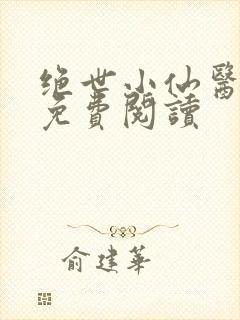 绝世小仙醫
免費閱讀
俞建華